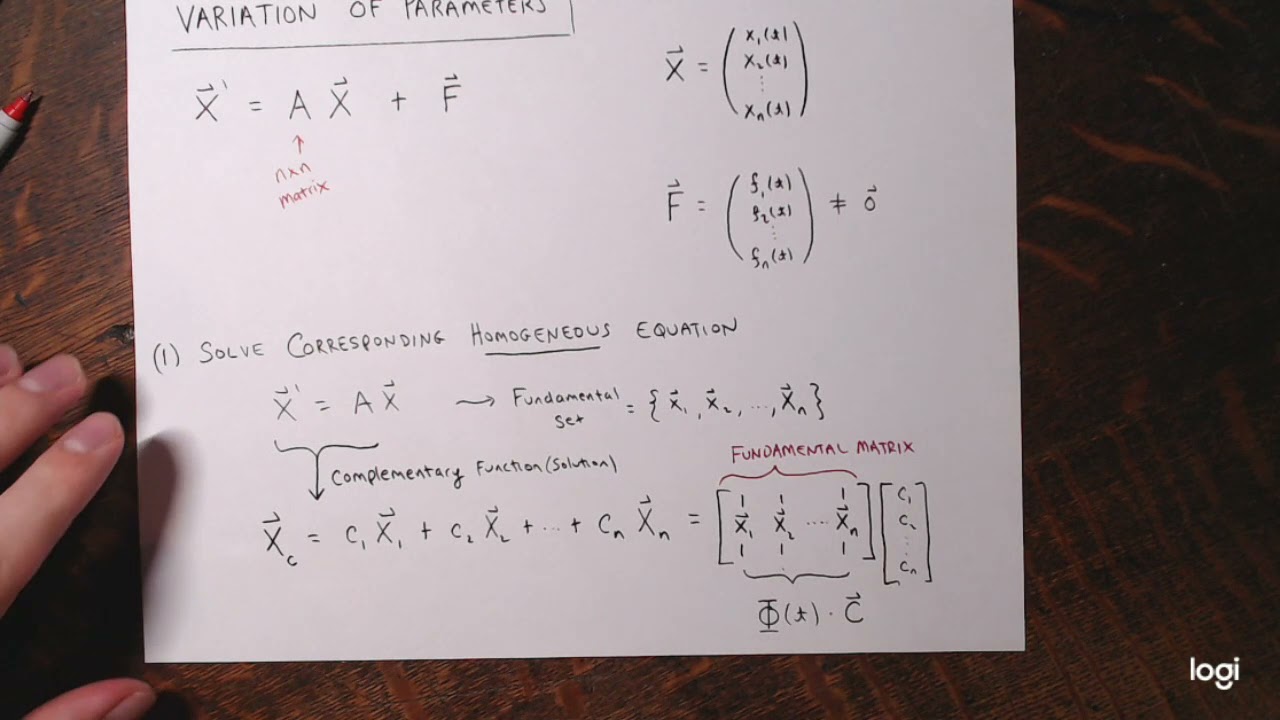 VARIATION OF PARAMETERS
X⃗' = A X⃗ + F⃗
↑
nxn
matrix
X⃗ = (x₁(t)
x₂(t)
⋮
xₙ(t))
F⃗ = (f₁(t)
f₂(t)
⋮
fₙ(t)) ≠ 0⃗
(1) SOLVE CORRESPONDING HOMOGENEOUS EQUATION
X⃗' = A X⃗ → Fundamental set = {X⃗₁, X⃗₂, ..., X⃗ₙ}
Complementary Function (Solution)
FUNDAMENTAL MATRIX
X⃗c = c₁X⃗₁ + c₂X⃗₂ + ... + cₙX⃗ₙ = [X⃗₁ X⃗₂ ... X⃗ₙ] [c₁
c₂
⋮
cₙ]
Φ(t) · C⃗
logi